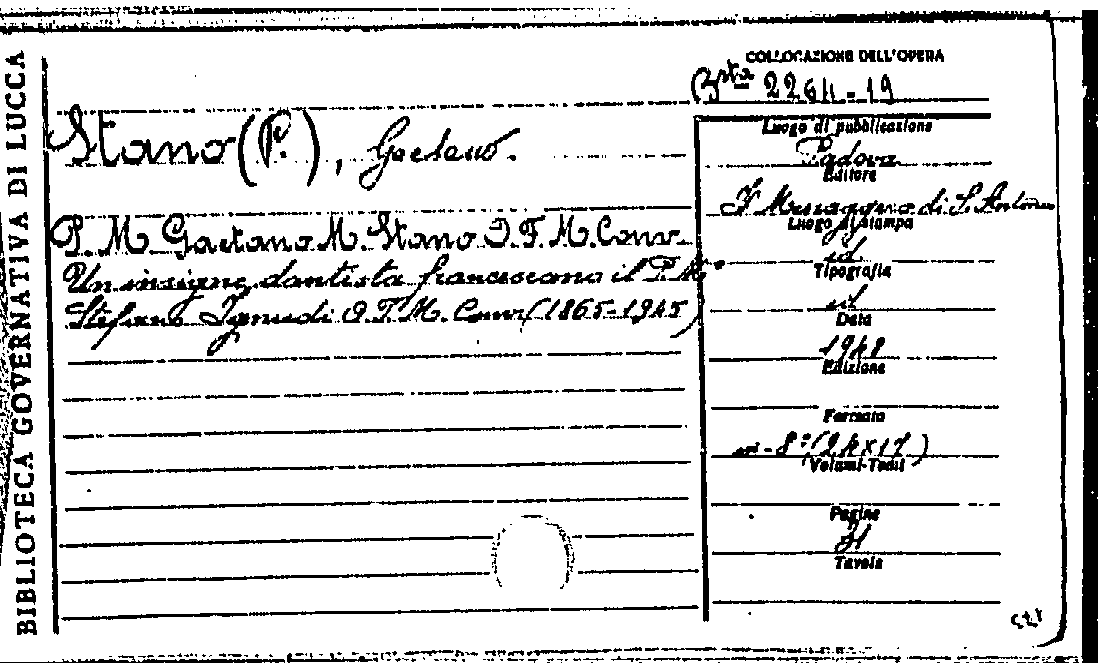 BIBLIOTECA GOVERNATIVA DI LUCCA
COLLOCAZIONE DELL'OPERA
Bsta 2264-19
Stano (P.), Gaetano.
P. M. Gaetano M. Stano O. F. M. Conv.
Un insigne dantista francescano il P. M.
Stefano Ignudi O. F. M. Conv. (1865-1945)
Luogo di pubblicazione
Padova
Editore
Il Messaggero di S. Antonio
Luogo di stampa
id
Tipografia
id
Data
1948
Edizione
Formato
in-8° (24x17)
Volumi-Tomi
Pagine
31
Tavole